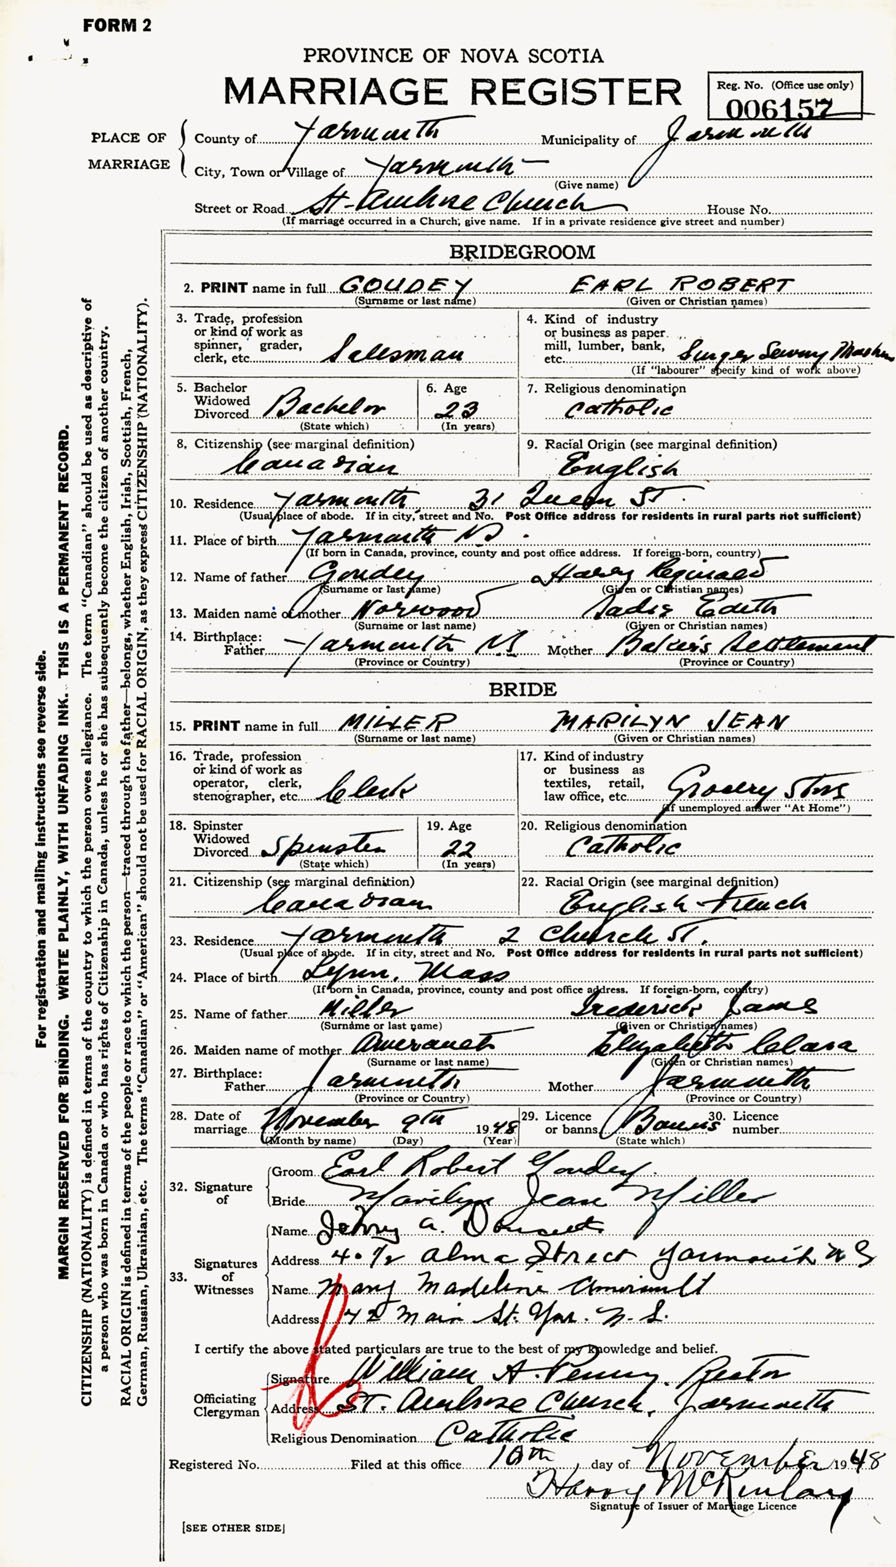 FORM 2
PROVINCE OF NOVA SCOTIA
MARRIAGE REGISTER
Reg. No. (Office use only)
006157
PLACE OF MARRIAGE
County of Yarmouth Municipality of Yarmouth
City, Town or Village of Yarmouth
(Give name)
Street or Road St. Ambrose Church House No.
(If marriage occurred in a Church, give name. If in a private residence give street and number)
BRIDEGROOM
2. PRINT name in full GOUDEY EARL ROBERT
(Surname or last name) (Given or Christian names)
3. Trade, profession or kind of work as spinner, grader, clerk, etc. Salesman
4. Kind of industry or business as paper mill, lumber, bank, etc. Singer Sewing Machine
(If "labourer" specify kind of work above)
5. Bachelor Widowed Divorced Bachelor
(State which)
6. Age 23
(In years)
7. Religious denomination
Catholic
8. Citizenship (see marginal definition)
Canadian
9. Racial Origin (see marginal definition)
English
10. Residence Yarmouth 31 Queen St.
(Usual place of abode. If in city, street and No. Post Office address for residents in rural parts not sufficient)
11. Place of birth Yarmouth N.S.
(If born in Canada, province, county and post office address. If foreign-born, country)
12. Name of father Goudey Harry Reginald
(Surname or last name) (Given or Christian names)
13. Maiden name of mother Norwood Sadie Edith
(Surname or last name) (Given or Christian names)
14. Birthplace:
Father Yarmouth N.S. Mother Baker's Settlement
(Province or Country) (Province or Country)
BRIDE
15. PRINT name in full MILLER MARILYN JEAN
(Surname or last name) (Given or Christian names)
16. Trade, profession or kind of work as operator, clerk, stenographer, etc. Clerk
17. Kind of industry or business as textiles, retail, law office, etc. Grocery Store
(If unemployed answer "At Home")
18. Spinster Widowed Divorced Spinster
(State which)
19. Age 22
(In years)
20. Religious denomination
Catholic
21. Citizenship (see marginal definition)
Canadian
22. Racial Origin (see marginal definition)
English-French
23. Residence Yarmouth 2 Church St.
(Usual place of abode. If in city, street and No. Post Office address for residents in rural parts not sufficient)
24. Place of birth Lynn, Mass
(If born in Canada, province, county and post office address. If foreign-born, country)
25. Name of father Miller Frederick James
(Surname or last name) (Given or Christian names)
26. Maiden name of mother Elizabeth Clara
(Surname or last name) (Given or Christian names)
27. Birthplace:
Father Yarmouth Mother Yarmouth
(Province or Country) (Province or Country)
28. Date of marriage November 9th 1948
(Month by name) (Day) (Year)
29. Licence or banns Banns
(State which)
30. Licence number
32. Signature of
Groom Earl Robert Goudey.
Bride Marilyn Jean Miller
33. Signatures of Witnesses
Name A.
Address 40 1/2 Alma Street Yarmouth N S
Name Mary Madeline Amirault
Address 42 Main St. Yar. N. S.
I certify the above stated particulars are true to the best of my knowledge and belief.
Officiating Clergyman
Signature William A. Penny, Rector
Address St. Ambrose Church, Yarmouth
Religious Denomination Catholic
Registered No. Filed at this office 10th day of November 1948
Harry McKinlay
Signature of Issuer of Marriage Licence
[SEE OTHER SIDE]
For registration and mailing instructions see reverse side.
MARGIN RESERVED FOR BINDING. WRITE PLAINLY, WITH UNFADING INK. THIS IS A PERMANENT RECORD.
CITIZENSHIP (NATIONALITY) is defined in terms of the country to which the person owes allegiance. The term "Canadian" should be used as descriptive of
a person who was born in Canada or who has rights of Citizenship in Canada, unless he or she has subsequently become the citizen of another country.
RACIAL ORIGIN is defined in terms of the people or race to which the person—traced through the father—belongs, whether English, Irish, Scottish, French,
German, Russian, Ukrainian, etc. The terms "Canadian" or "American" should not be used for RACIAL ORIGIN, as they express CITIZENSHIP (NATIONALITY).